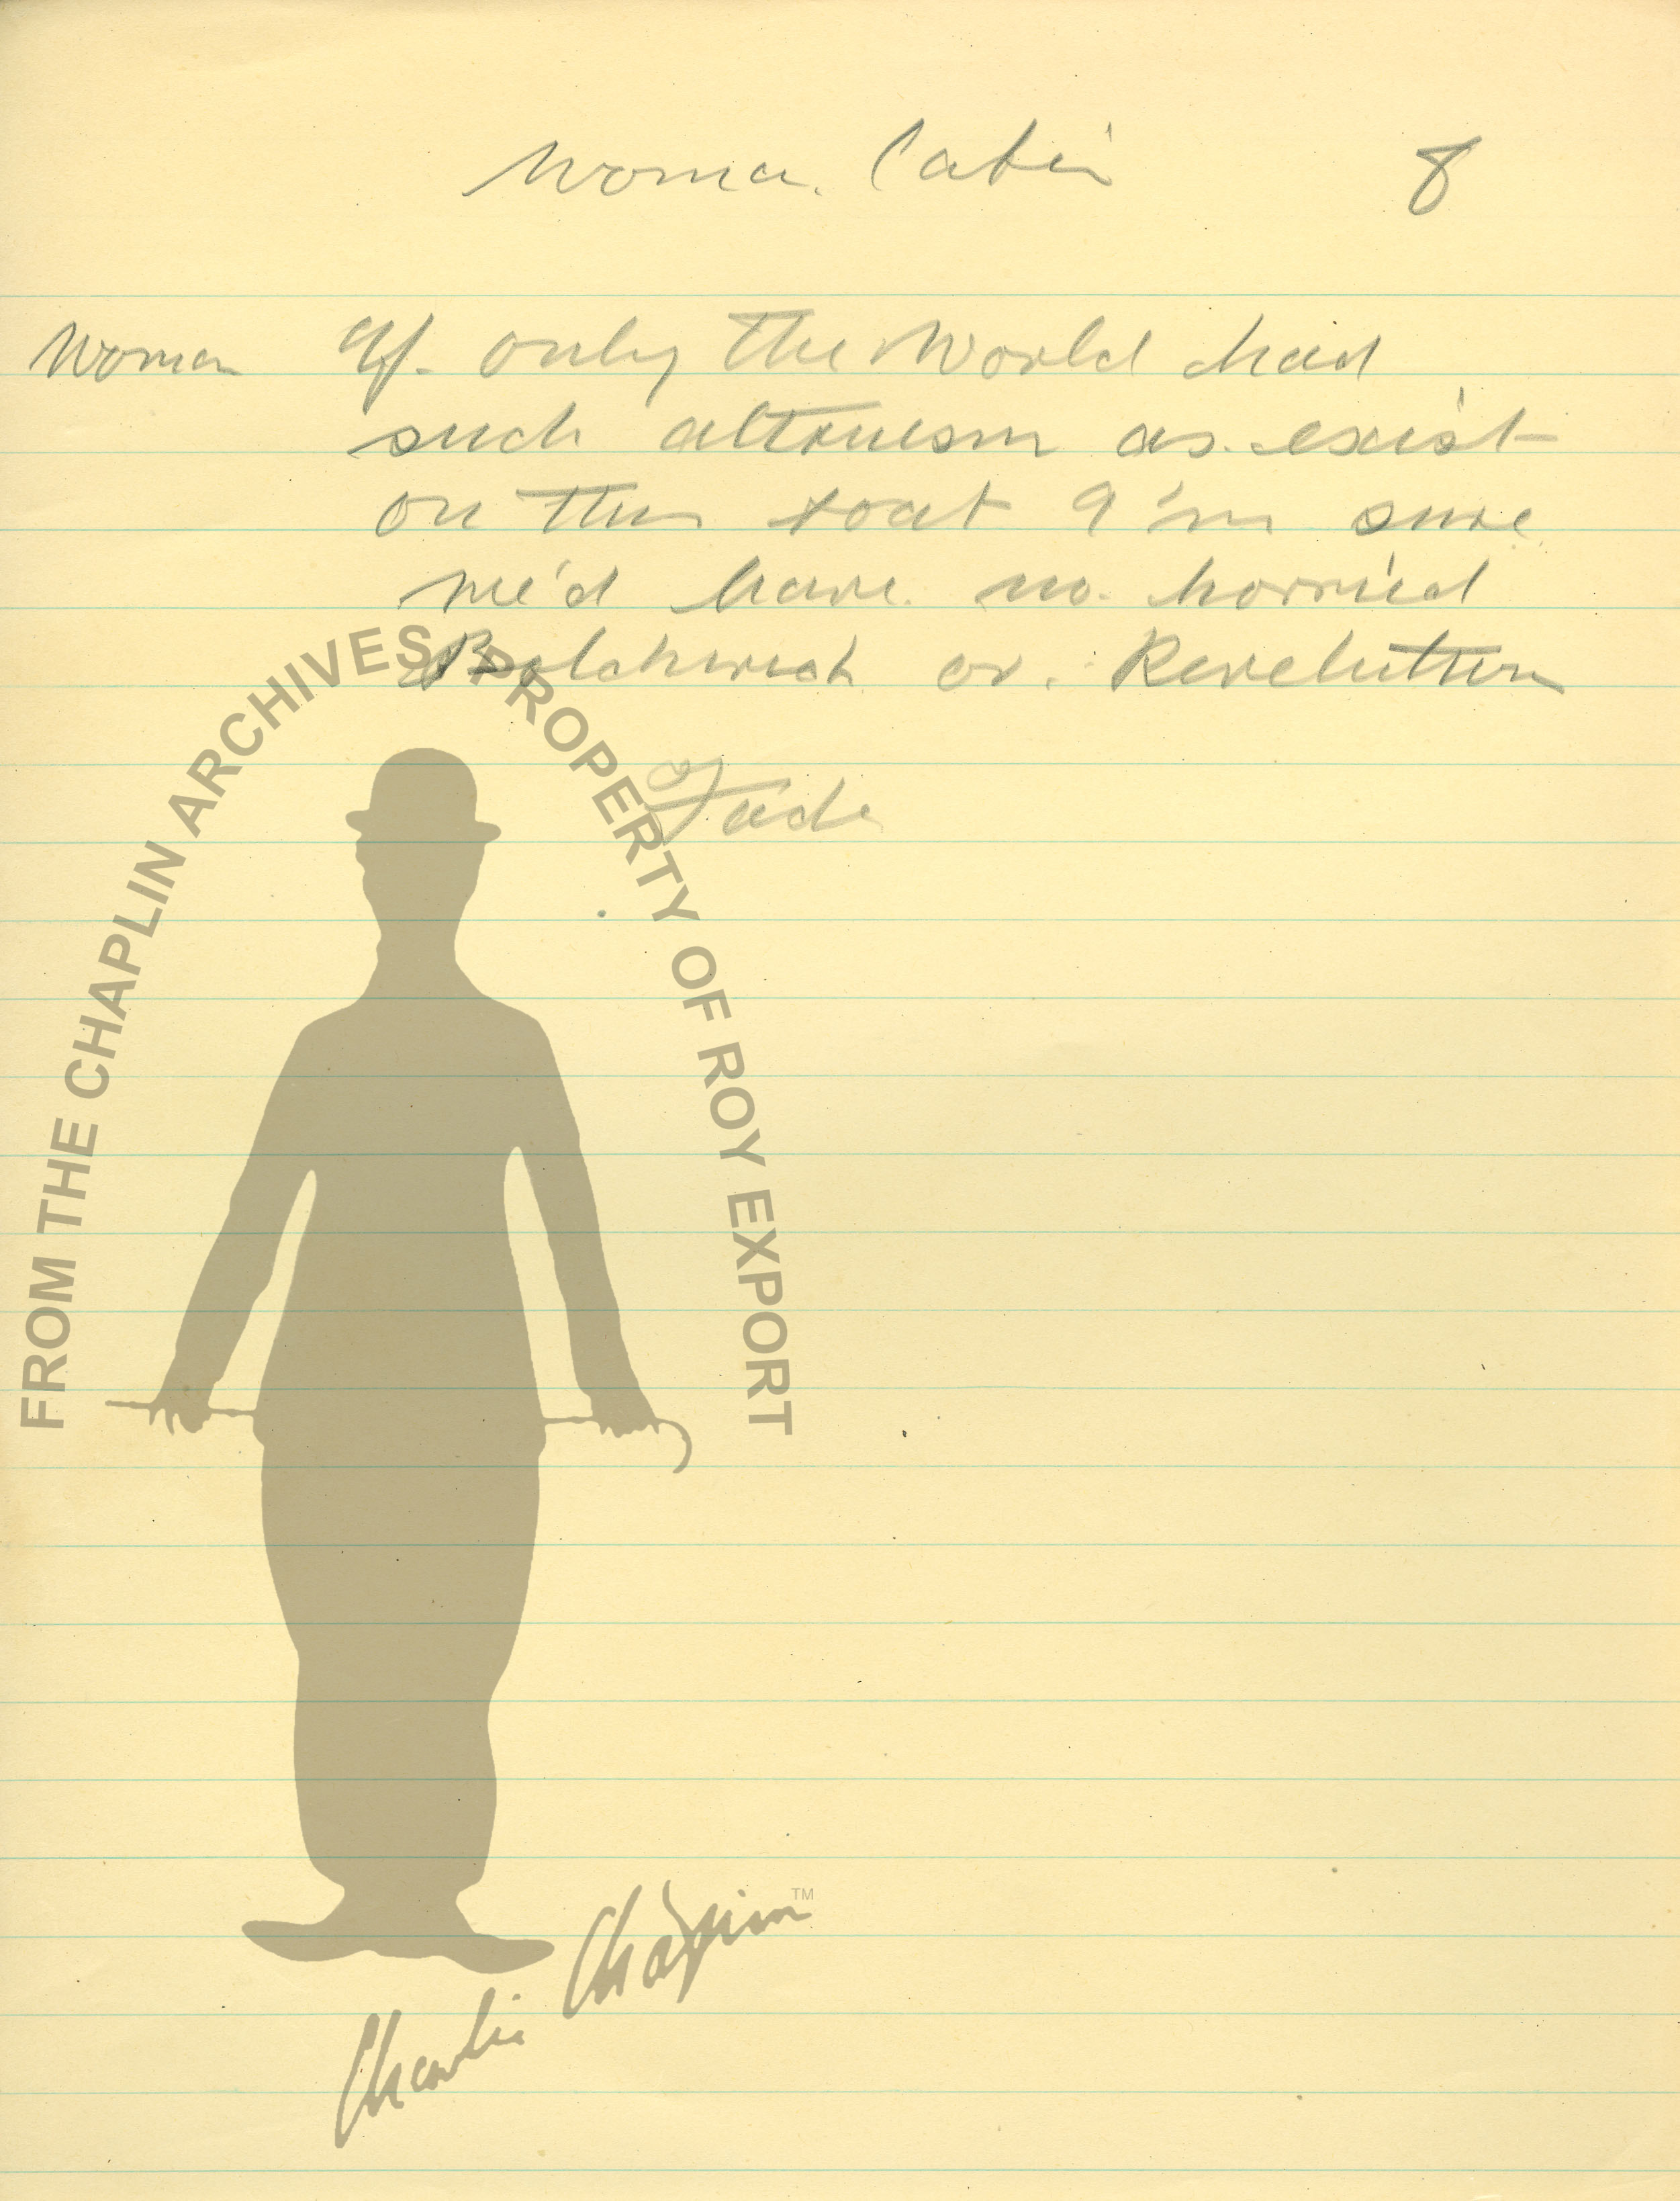 Woman. Cabin 8
Woman If only the World had
such altruism as exist
on this boat I'm sure
we'd have no horried
Bolshevish or Revolution
Fade
FROM THE CHAPLIN ARCHIVES, PROPERTY OF ROY EXPORT
Charlie Chaplin™